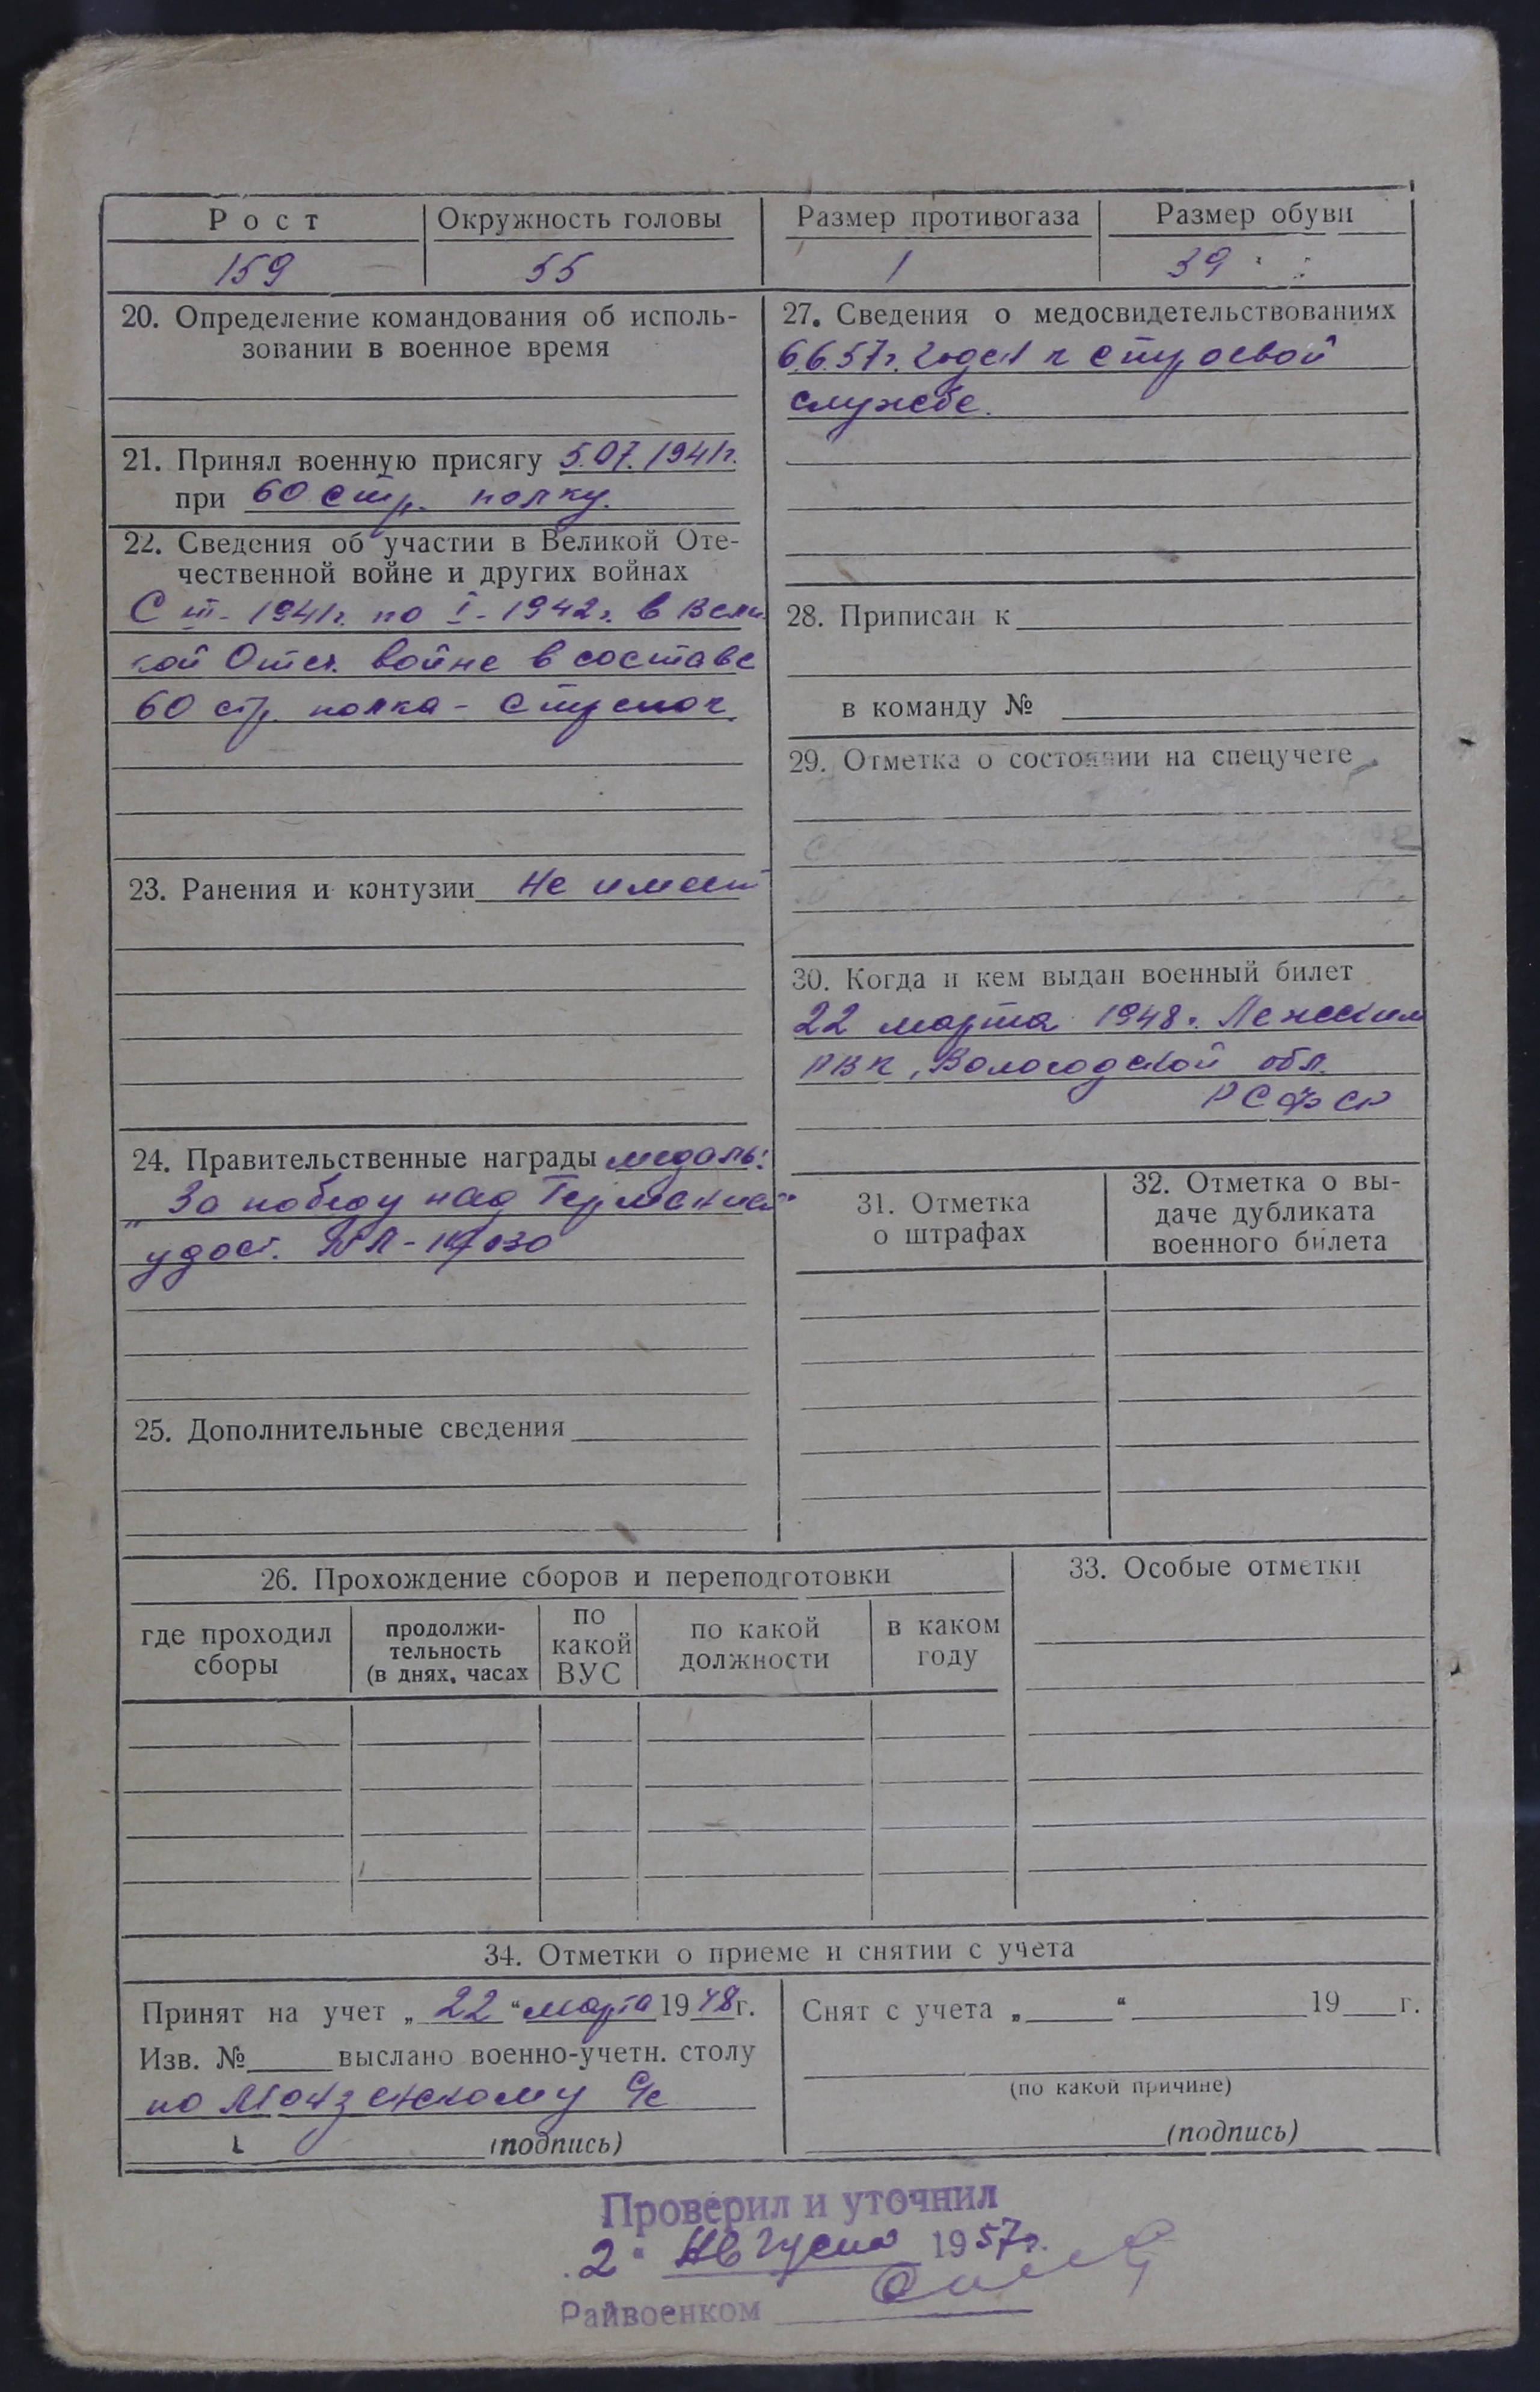 Рост
Окружность головы
Размер противогаза
Размер обуви
159
55
1
39
20. Определение командования об исполь-
зовании в военное время
21. Принял военную присягу 5.07.1941г.
при 60 стр. полку.
22. Сведения об участии в Великой Оте-
чественной войне и других войнах
С III - 1941г. по I - 1942г. в Вели
кой Отеч. войне в составе
60 стр. полка - стрелок.
23. Ранения и контузии Не имеет
24. Правительственные награды медаль:
„За победу над Германией“
удост.
25. Дополнительные сведения
27. Сведения о медосвидетельствованиях
6.6.57г. годен к строевой
службе.
28. Приписан к
в команду №
29. Отметка о состоянии на спецучете
30. Когда и кем выдан военный билет
22 марта 1948г. Лежским
РВК, Вологодской обл.
РСФСР
31. Отметка
о штрафах
32. Отметка о вы-
даче дубликата
военного билета
26. Прохождение сборов и переподготовки
где проходил
сборы
продолжи-
тельность
(в днях, часах
по
какой
ВУС
по какой
должности
в каком
году
33. Особые отметки
34. Отметки о приеме и снятии с учета
Принят на учет „22“ марта 1948г.
Изв. № выслано военно-учетн. столу
по Монзенскому с/с
(подпись)
Снят с учета „ “ 19 г.
(по какой причине)
(подпись)
Проверил и уточнил
2 " Августа 1957г.
Райвоенком